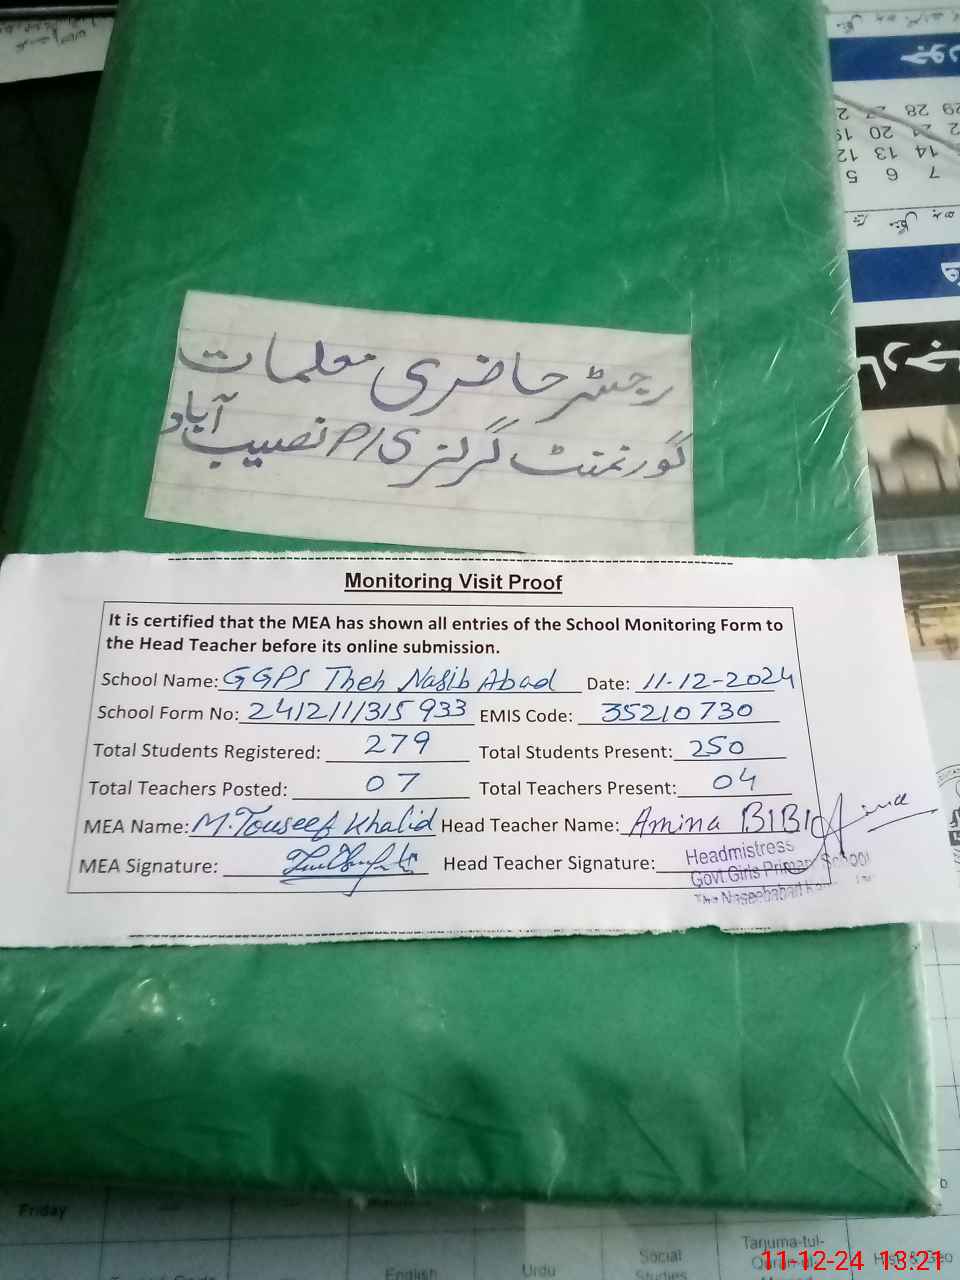 رجسٹر حاضری معلمات
گورنمنٹ گرلز ی/P نصیب آباد
Monitoring Visit Proof
It is certified that the MEA has shown all entries of the School Monitoring Form to
the Head Teacher before its online submission.
School Name: GGPS Theh Nasib Abad Date: 11-12-2024
School Form No: 241211315933 EMIS Code: 35210730
Total Students Registered: 279 Total Students Present: 250
Total Teachers Posted: 07 Total Teachers Present: 04
MEA Name: M. Touseef Khalid Head Teacher Name: Amina BIBI
MEA Signature: Head Teacher Signature:
Headmistress
Govt Girls Primary School
Naseebabad
Friday
English
Urdu
Social
Studies
Tarjuma-tul-
Quran-ul-
Hist & Geo
11-12-24 13:21